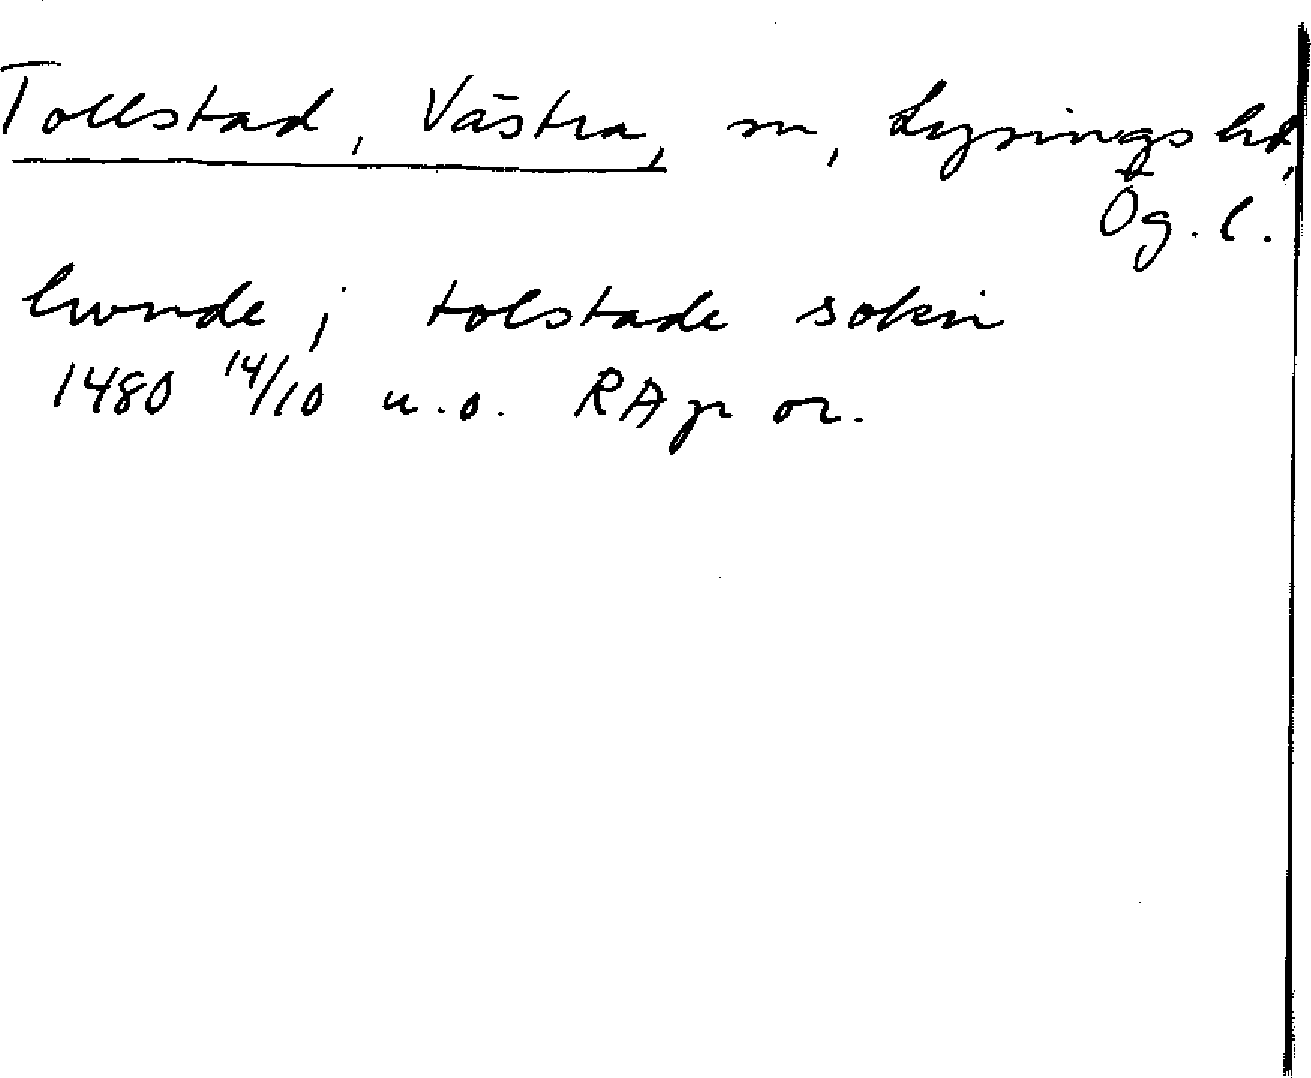 Tollstad, Västra, sn, Lysings hd,
Ög. l.
lwnde j tolstade sokn
1480 14/10 u.o. RAp or.